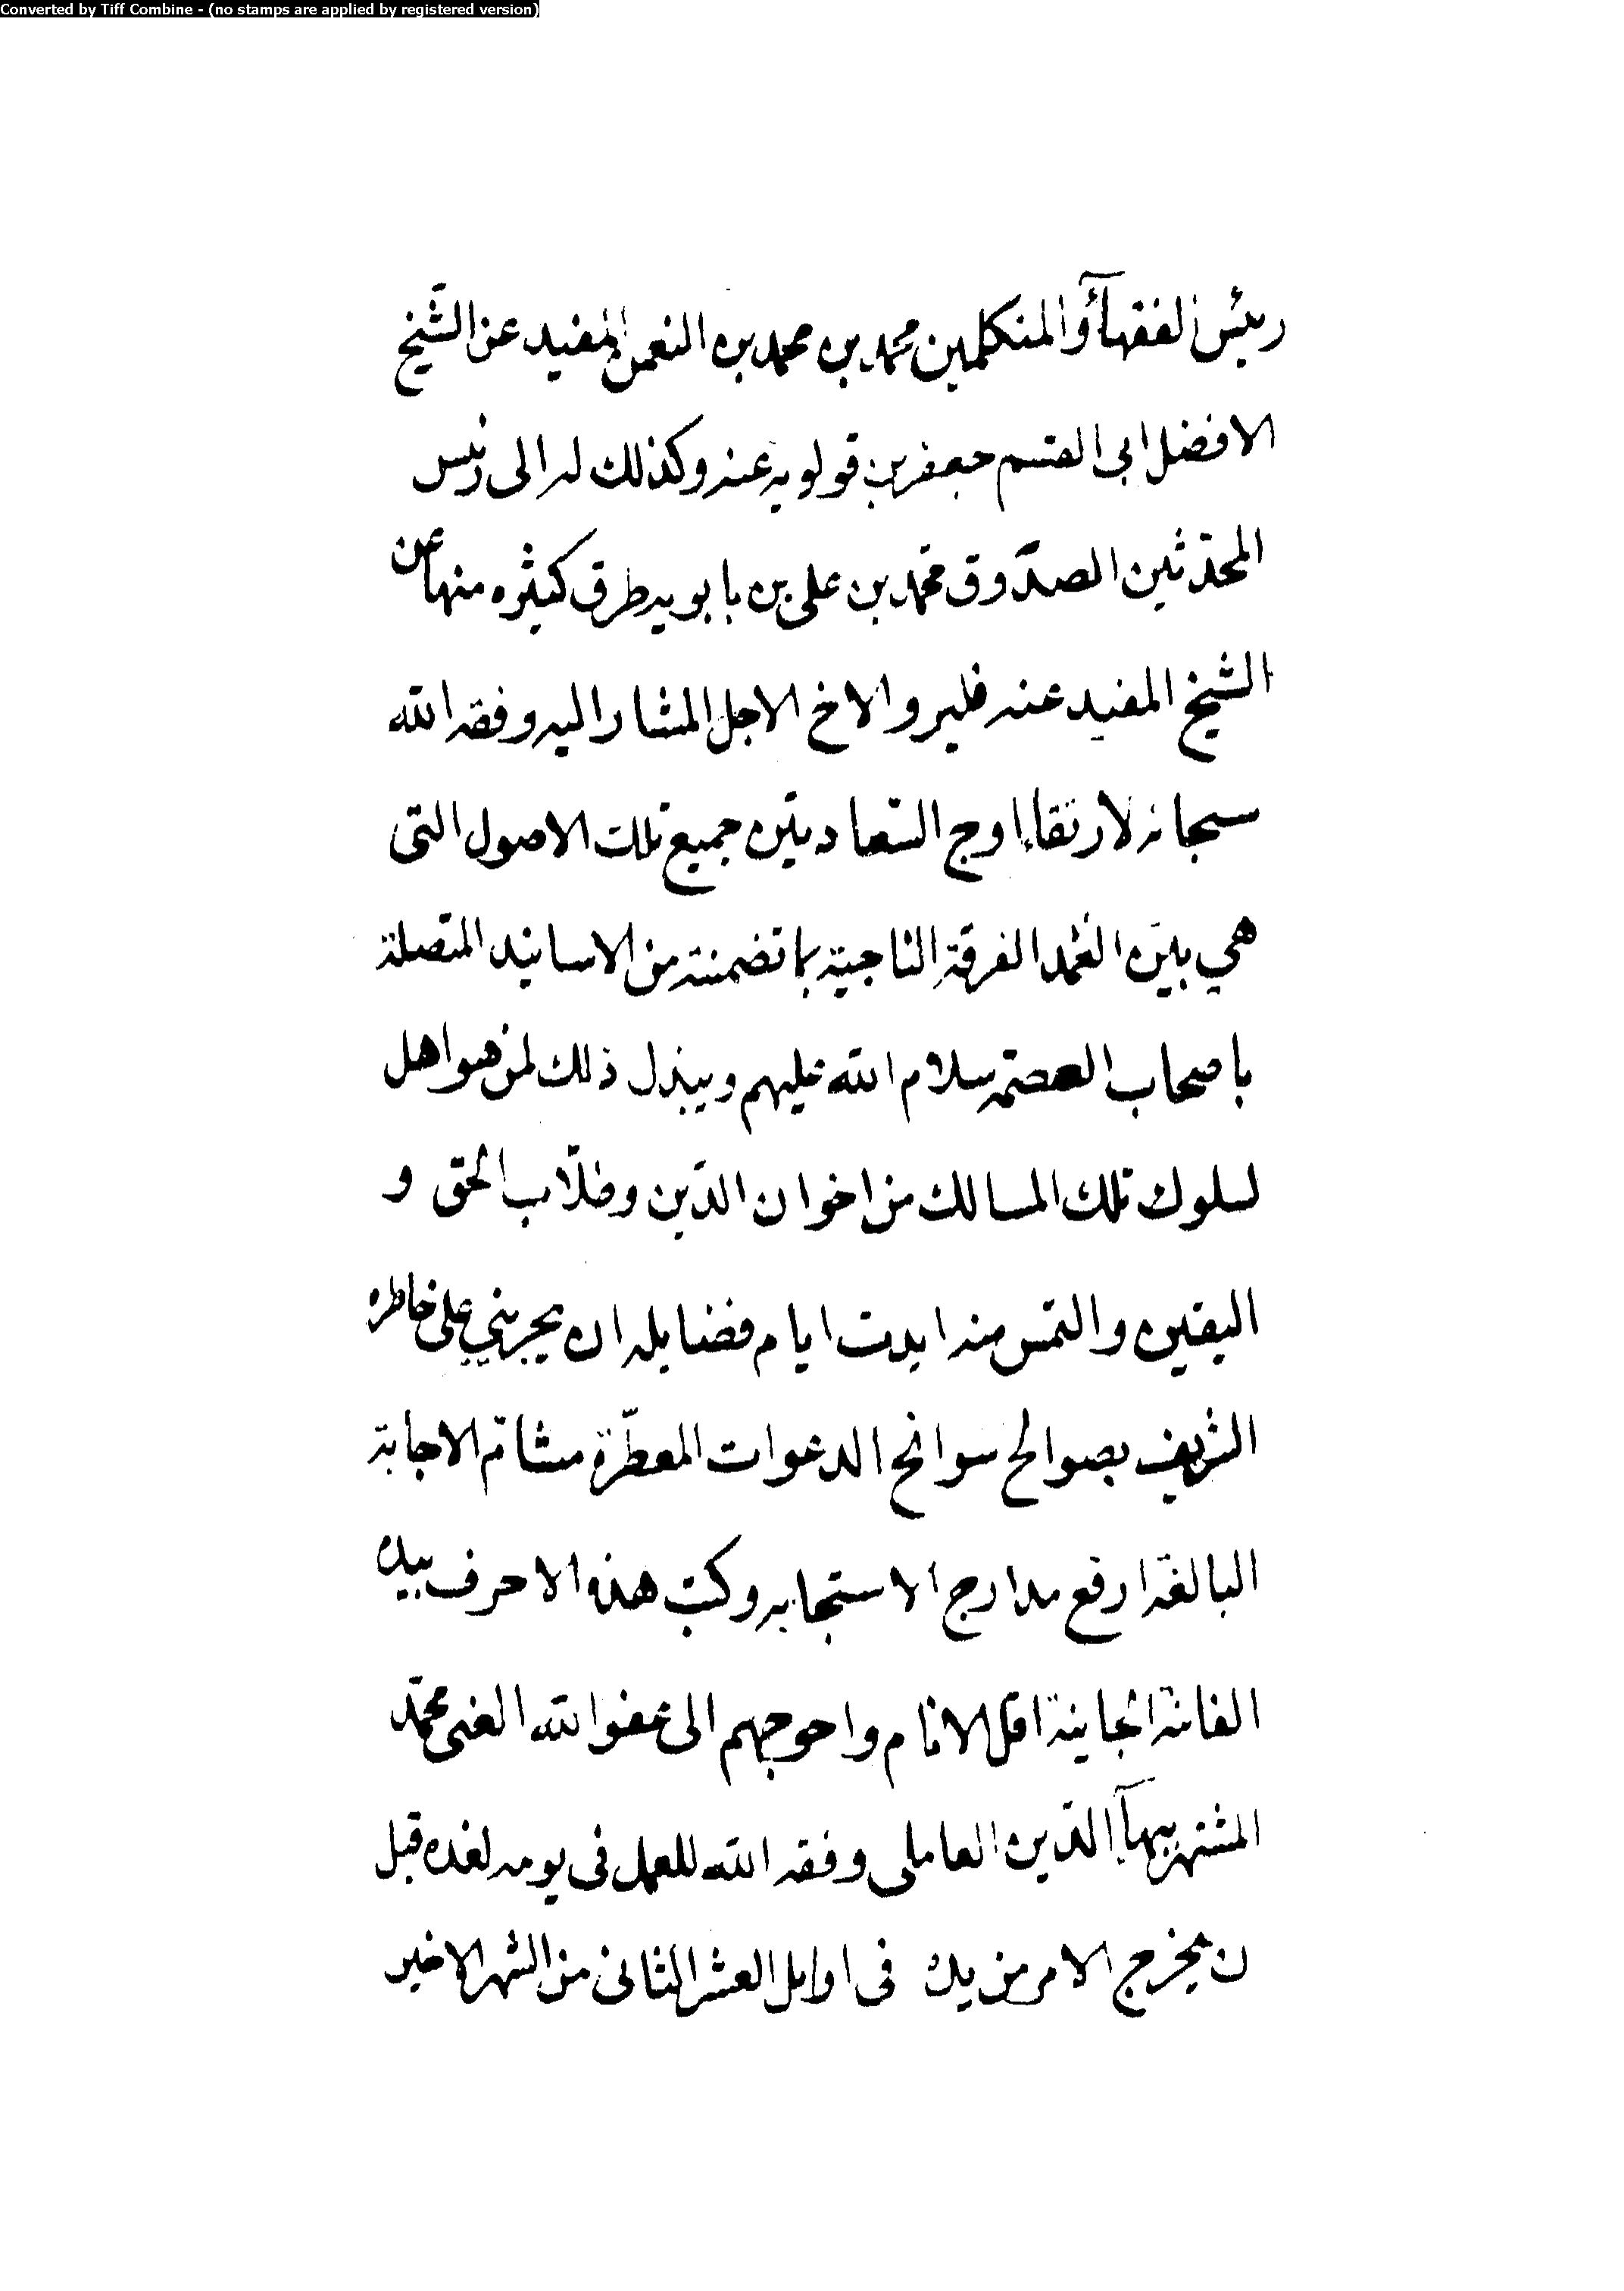 Converted by Tiff Combine - (no stamps are applied by registered version)
رئيس الفقهآء والمتكلمين محمد بن محمد بن النعمن المفيد عن الشّيخ
الافضل ابى القسم جعفر بن قولويه عنه وكذلك له الى رئيس
المحدّثين الصدّوق محمّد بن على بن بابويه طرق كثيره منها عن
الشيخ المفيد عنه فليرو الاخ الاجل المشار اليه وفقه الله
سبحانه لارتقاء اوج السّعادتين جميع تلك الاصول التى
هي بين العُمد الفرقة النّاجية بما تضمنته من الاسانيد المتصلة
باصحاب العصمة سلام الله عليهم ويبذل ذلك لمن هو اهل
لسلوك تلك المسالك من اخوان الدّين وطلّاب الحق و
اليقين والتمس منه ابدت ايام فضايله ان يجريني على خاطره
الشريف بصوالح سوانح الدعوات المعطّرة مشامّ الاجابة
البالغة ارفع مدارج الاستجابه وكتب هذه الاحرف بيده
الفانية الجانية اقل الانام واحوجهم الى عفو الله الغنى محمّد
المشتهر ببهآء الدّين العاملى وفقه الله للعمل فى يومه لغده قبل
ن يخرج الامر من يده فى اوايل العشر الثانى من الشهر الاخير